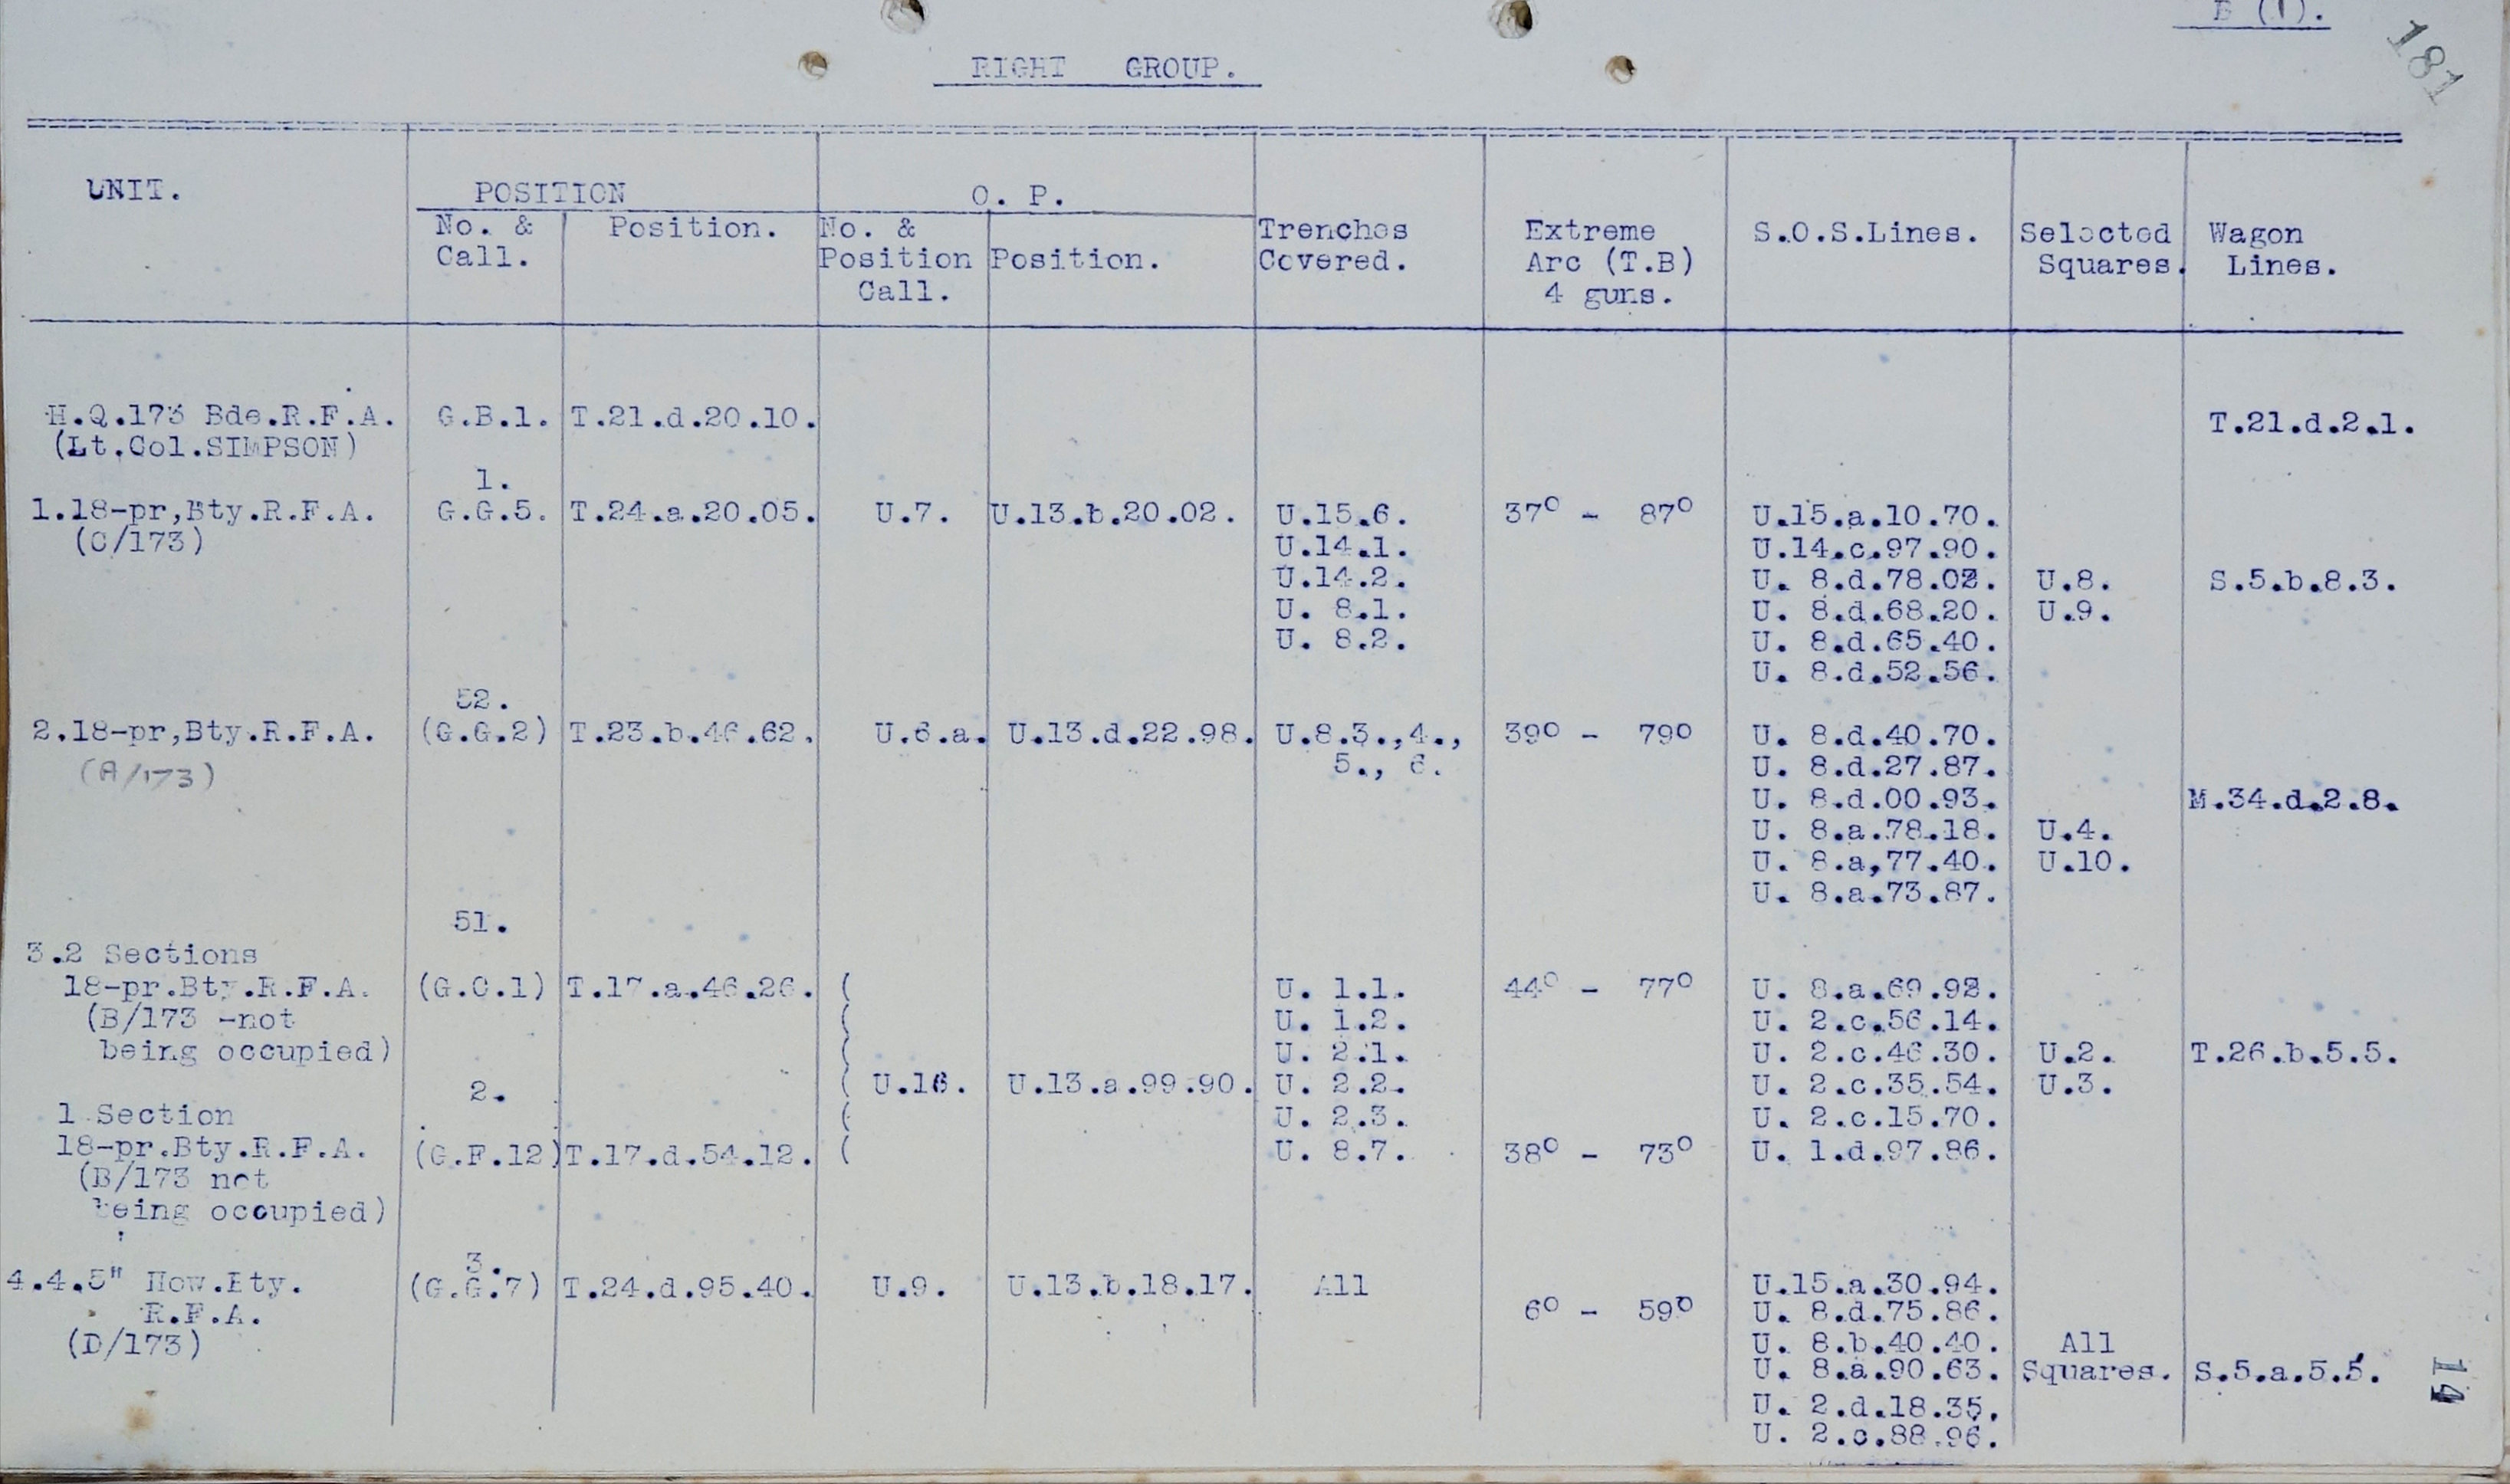 B (1).
181
RIGHT GROUP.
UNIT. POSITION O. P.
No. & Position. No. & Trenches Extreme S.O.S.Lines. Selected Wagon
Call. Position Position. Covered. Arc (T.B) Squares. Lines.
Call. 4 guns.
H.Q.173 Bde.R.F.A. G.B.1. T.21.d.20.10. T.21.d.2.1.
(Lt.Col.SIMPSON)
1.
1.18-pr,Bty.R.F.A. G.G.5. T.24.a.20.05. U.7. U.13.b.20.02. U.15.6. 37° - 87° U.15.a.10.70.
(C/173) U.14.1. U.14.c.97.90.
U.14.2. U. 8.d.78.02. U.8. S.5.b.8.3.
U. 8.1. U. 8.d.68.20. U.9.
U. 8.2. U. 8.d.65.40.
U. 8.d.52.56.
52.
2.18-pr,Bty.R.F.A. (G.G.2) T.23.b.46.62. U.6.a. U.13.d.22.98. U.8.3.,4., 39° - 79° U. 8.d.40.70.
(A/173) 5., 6. U. 8.d.27.87.
U. 8.d.00.93. M.34.d.2.8.
U. 8.a.78.18. U.4.
U. 8.a,77.40. U.10.
U. 8.a.73.87.
51.
3.2 Sections
18-pr.Bty.R.F.A. (G.C.1) T.17.a.46.26. ( U. 1.1. 44° - 77° U. 8.a.69.92.
(B/173 -not ( U. 1.2. U. 2.c.56.14.
being occupied) ( U. 2.1. U. 2.c.46.30. U.2. T.26.b.5.5.
2. ( U.16. U.13.a.99.90. U. 2.2. U. 2.c.35.54. U.3.
1 Section ( U. 2.3. U. 2.c.15.70.
18-pr.Bty.R.F.A. (G.F.12) T.17.d.54.12. ( U. 8.7. 38° - 73° U. 1.d.97.86.
(B/173 not
being occupied)
3.
4.4.5" How.Bty. (G.G.7) T.24.d.95.40. U.9. U.13.b.18.17. All U.15.a.30.94.
R.F.A. 6° - 59° U. 8.d.75.86.
(D/173) U. 8.b.40.40. All
U. 8.a.90.63. Squares. S.5.a.5.5.
U. 2.d.18.35.
U. 2.c.88.96.
14